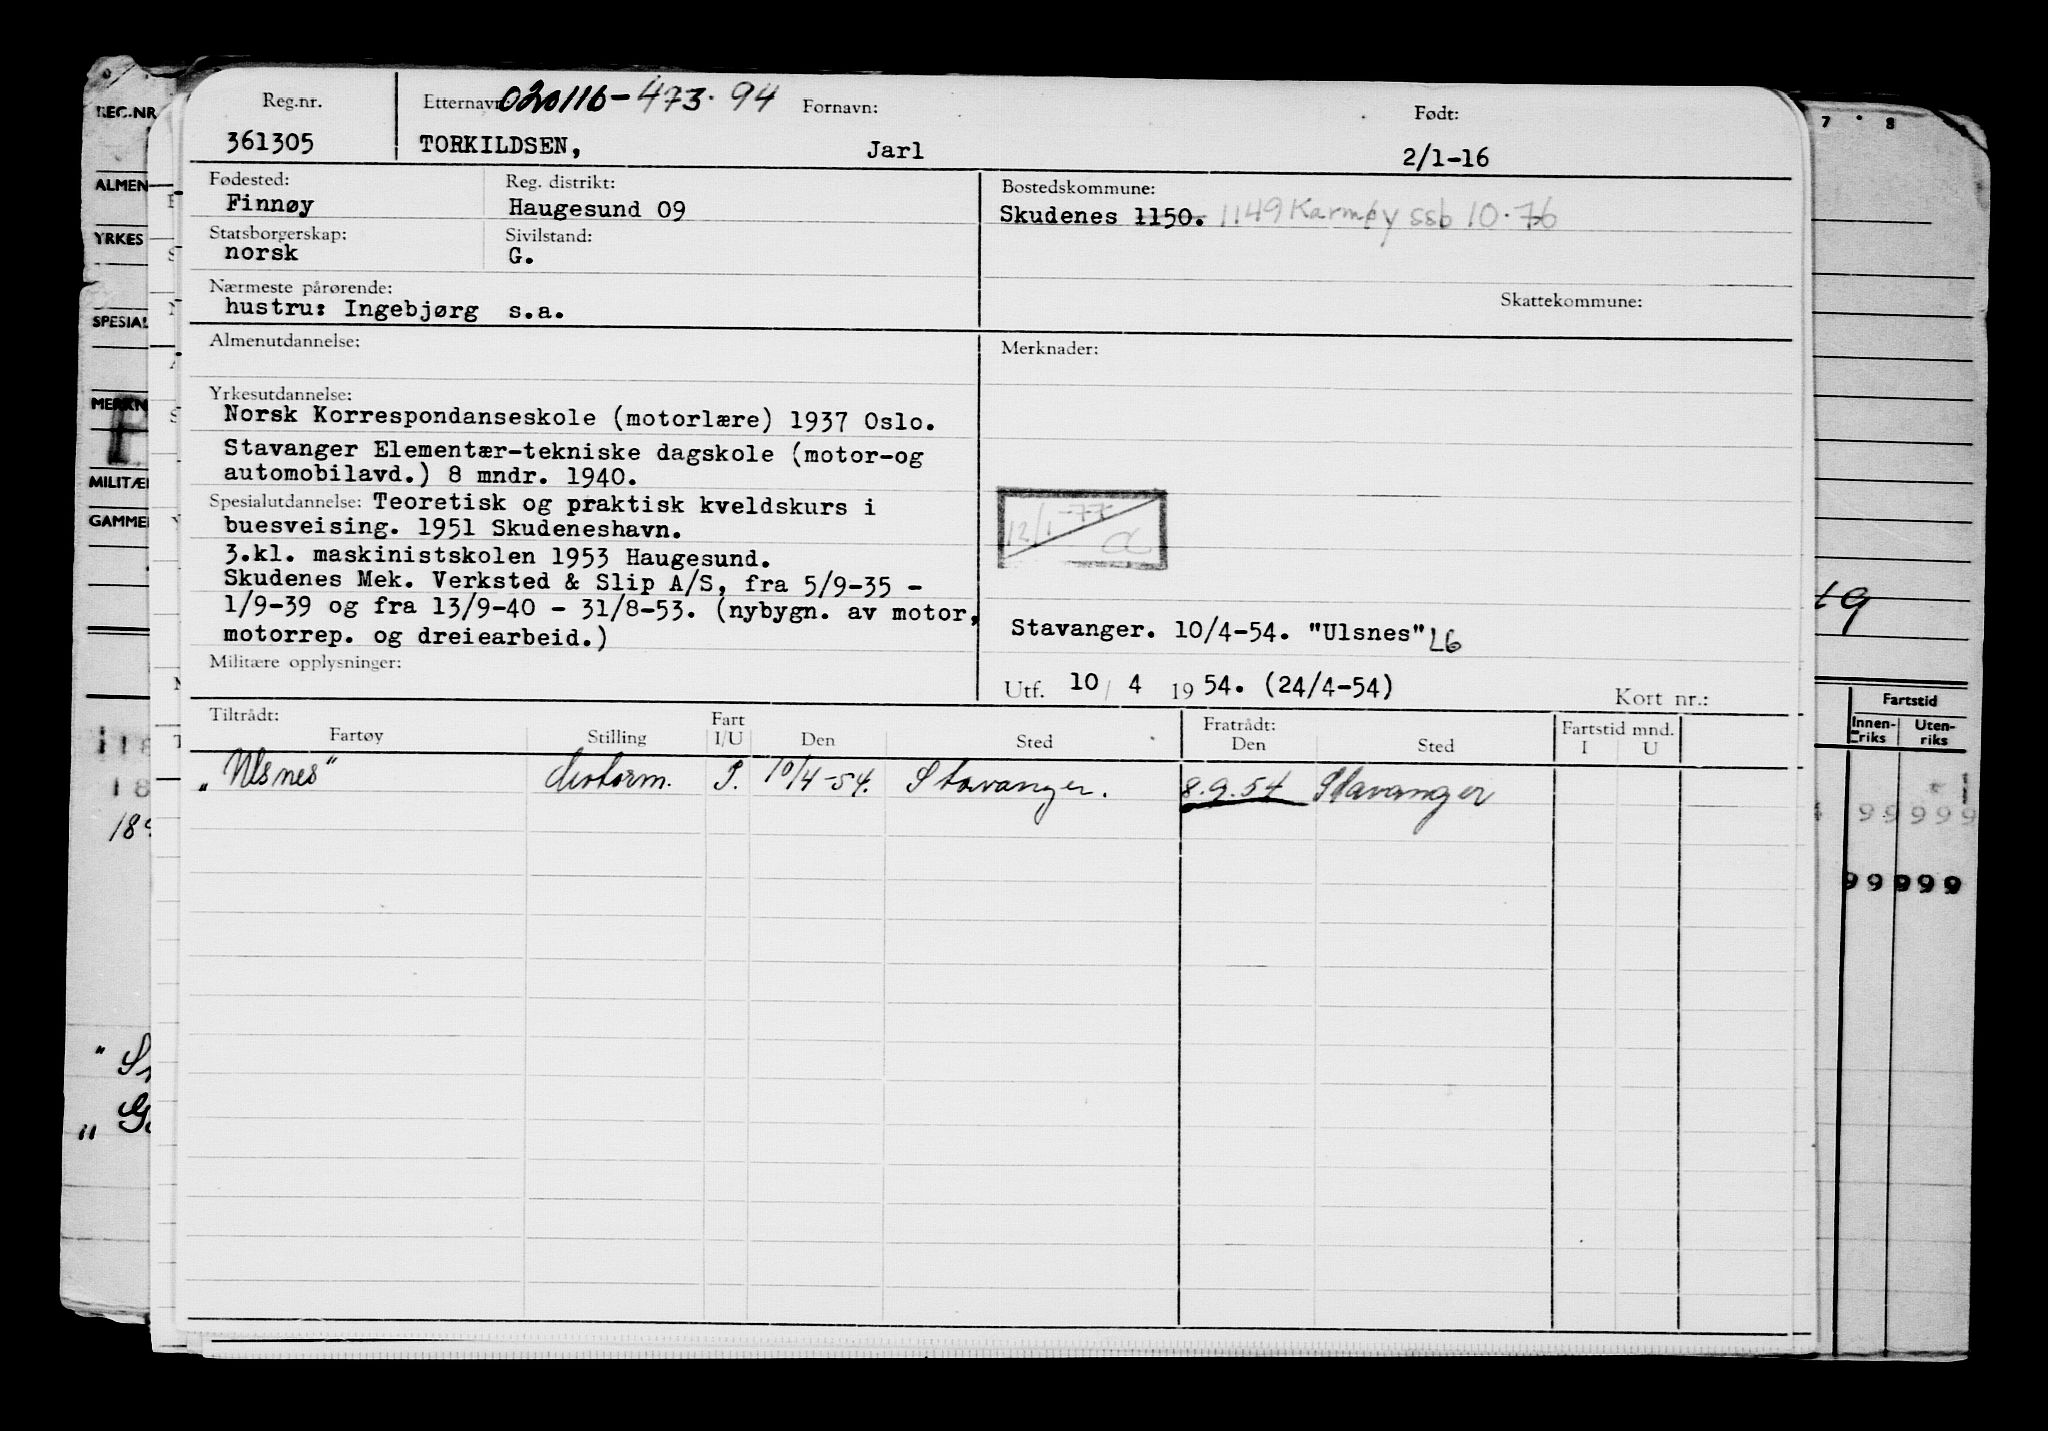 Reg.nr. Etternavn: 020116-473.94 Fornavn: Født:
361305 TORKILDSEN, Jarl 2/1-16
Fødested: Reg. distrikt: Bostedskommune:
Finnøy Haugesund 09 Skudenes 1150. 1149 Karmøy ssb 10.76
Statsborgerskap: Sivilstand:
norsk G.
Nærmeste pårørende: Skattekommune:
hustru: Ingebjørg s.a.
Almenutdannelse: Merknader:
Yrkesutdannelse:
Norsk Korrespondanseskole (motorlære) 1937 Oslo.
Stavanger Elementær-tekniske dagskole (motor-og
automobilavd.) 8 mndr. 1940.
Spesialutdannelse: Teoretisk og praktisk kveldskurs i
buesveising. 1951 Skudeneshavn.
12/1-77
3.kl. maskinistskolen 1953 Haugesund.
Skudenes Mek. Verksted & Slip A/S, fra 5/9-35 -
1/9-39 og fra 13/9-40 - 31/8-53. (nybygn. av motor,
motorrep. og dreiearbeid.)
Stavanger. 10/4-54. "Ulsnes" L6
Militære opplysninger:
Utf. 10 / 4 1954. (24/4-54) Kort nr.:
Tiltrådt: Fart Fratrådt: Fartstid mnd.
Fartøy Stilling I/U Den Sted Den Sted I U
„Ulsnes" 10/4-54. Stavanger. 8.9.54 Stavanger
REG.NR
ALMEN
YRKES
SPESIAL
MERKN
MILITÆ
GAMME
7 8
19
Fartstid
Innen-riks Uten-riks
99999
99999